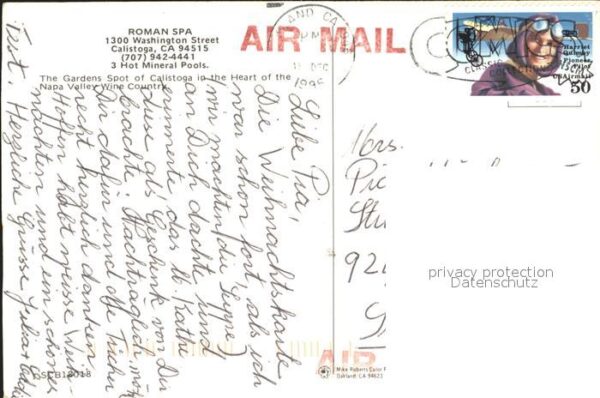 ROMAN SPA
1300 Washington Street
Calistoga, CA 94515
(707) 942-4441
3 Hot Mineral Pools.
The Gardens Spot of Calistoga in the Heart of the
Napa Valley Wine Country
AIR MAIL
AND CA
PM
DEC
Harriet
Quimby
Pioneer
Pilot
USAirmail
50
Liebe Pia,
Die Weihnachtskarte
war schon fort, als ich
an Dich dachte. Unsere
das lb. Kathrin
als Geschenk von Dir
brachte. Nachträglich
Dir dafür und die Tücher
recht herzlich danken.
Hoffen habt weisse Weih-
nachten und ein schönes
Fest. Herzliche Grüsse Julia +
Mrs.
Pia
Stu
92
privacy protection
Datenschutz
AIR
SCB18018
Mike Roberts Color P
Oakland, CA 94623